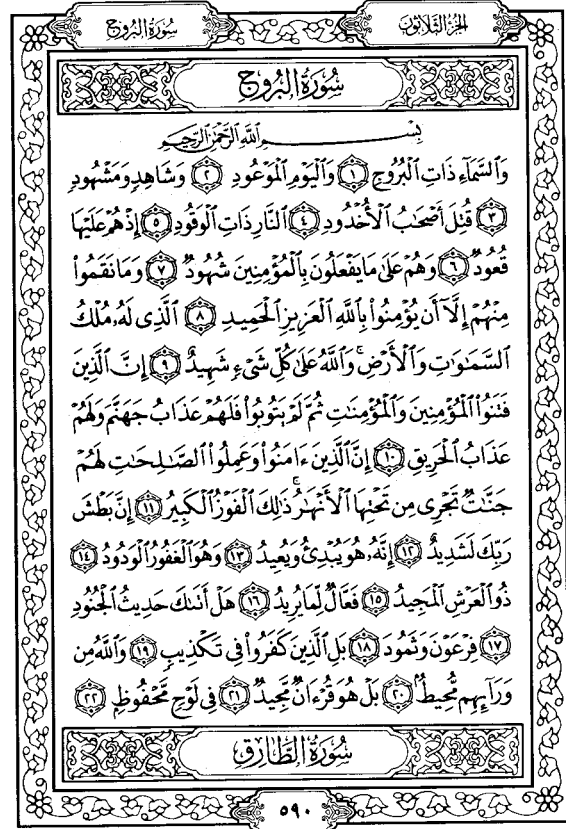 سُورَةُ البُرُوجِ الجُزْءُ الثَّلَاثُونَ
سُورَةُ البُرُوجِ
بِسْمِ ٱللَّهِ ٱلرَّحْمَٰنِ ٱلرَّحِيمِ
وَٱلسَّمَآءِ ذَاتِ ٱلْبُرُوجِ ١ وَٱلْيَوْمِ ٱلْمَوْعُودِ ٢ وَشَاهِدٍ وَمَشْهُودٍ
٣ قُتِلَ أَصْحَٰبُ ٱلْأُخْدُودِ ٤ ٱلنَّارِ ذَاتِ ٱلْوَقُودِ ٥ إِذْ هُمْ عَلَيْهَا
قُعُودٌ ٦ وَهُمْ عَلَىٰ مَا يَفْعَلُونَ بِٱلْمُؤْمِنِينَ شُهُودٌ ٧ وَمَا نَقَمُوا۟
مِنْهُمْ إِلَّآ أَن يُؤْمِنُوا۟ بِٱللَّهِ ٱلْعَزِيزِ ٱلْحَمِيدِ ٨ ٱلَّذِى لَهُۥ مُلْكُ
ٱلسَّمَٰوَٰتِ وَٱلْأَرْضِ ۚ وَٱللَّهُ عَلَىٰ كُلِّ شَىْءٍ شَهِيدٌ ٩ إِنَّ ٱلَّذِينَ
فَتَنُوا۟ ٱلْمُؤْمِنِينَ وَٱلْمُؤْمِنَٰتِ ثُمَّ لَمْ يَتُوبُوا۟ فَلَهُمْ عَذَابُ جَهَنَّمَ وَلَهُمْ
عَذَابُ ٱلْحَرِيقِ ١٠ إِنَّ ٱلَّذِينَ ءَامَنُوا۟ وَعَمِلُوا۟ ٱلصَّٰلِحَٰتِ لَهُمْ
جَنَّٰتٌ تَجْرِى مِن تَحْتِهَا ٱلْأَنْهَٰرُ ۚ ذَٰلِكَ ٱلْفَوْزُ ٱلْكَبِيرُ ١١ إِنَّ بَطْشَ
رَبِّكَ لَشَدِيدٌ ١٢ إِنَّهُۥ هُوَ يُبْدِئُ وَيُعِيدُ ١٣ وَهُوَ ٱلْغَفُورُ ٱلْوَدُودُ ١٤
ذُو ٱلْعَرْشِ ٱلْمَجِيدُ ١٥ فَعَّالٌ لِّمَا يُرِيدُ ١٦ هَلْ أَتَىٰكَ حَدِيثُ ٱلْجُنُودِ
١٧ فِرْعَوْنَ وَثَمُودَ ١٨ بَلِ ٱلَّذِينَ كَفَرُوا۟ فِى تَكْذِيبٍ ١٩ وَٱللَّهُ مِن
وَرَآئِهِم مُّحِيطٌۢ ٢٠ بَلْ هُوَ قُرْءَانٌ مَّجِيدٌ ٢١ فِى لَوْحٍ مَّحْفُوظٍۭ ٢٢
سُورَةُ الطَّارِقِ
٥٩٠